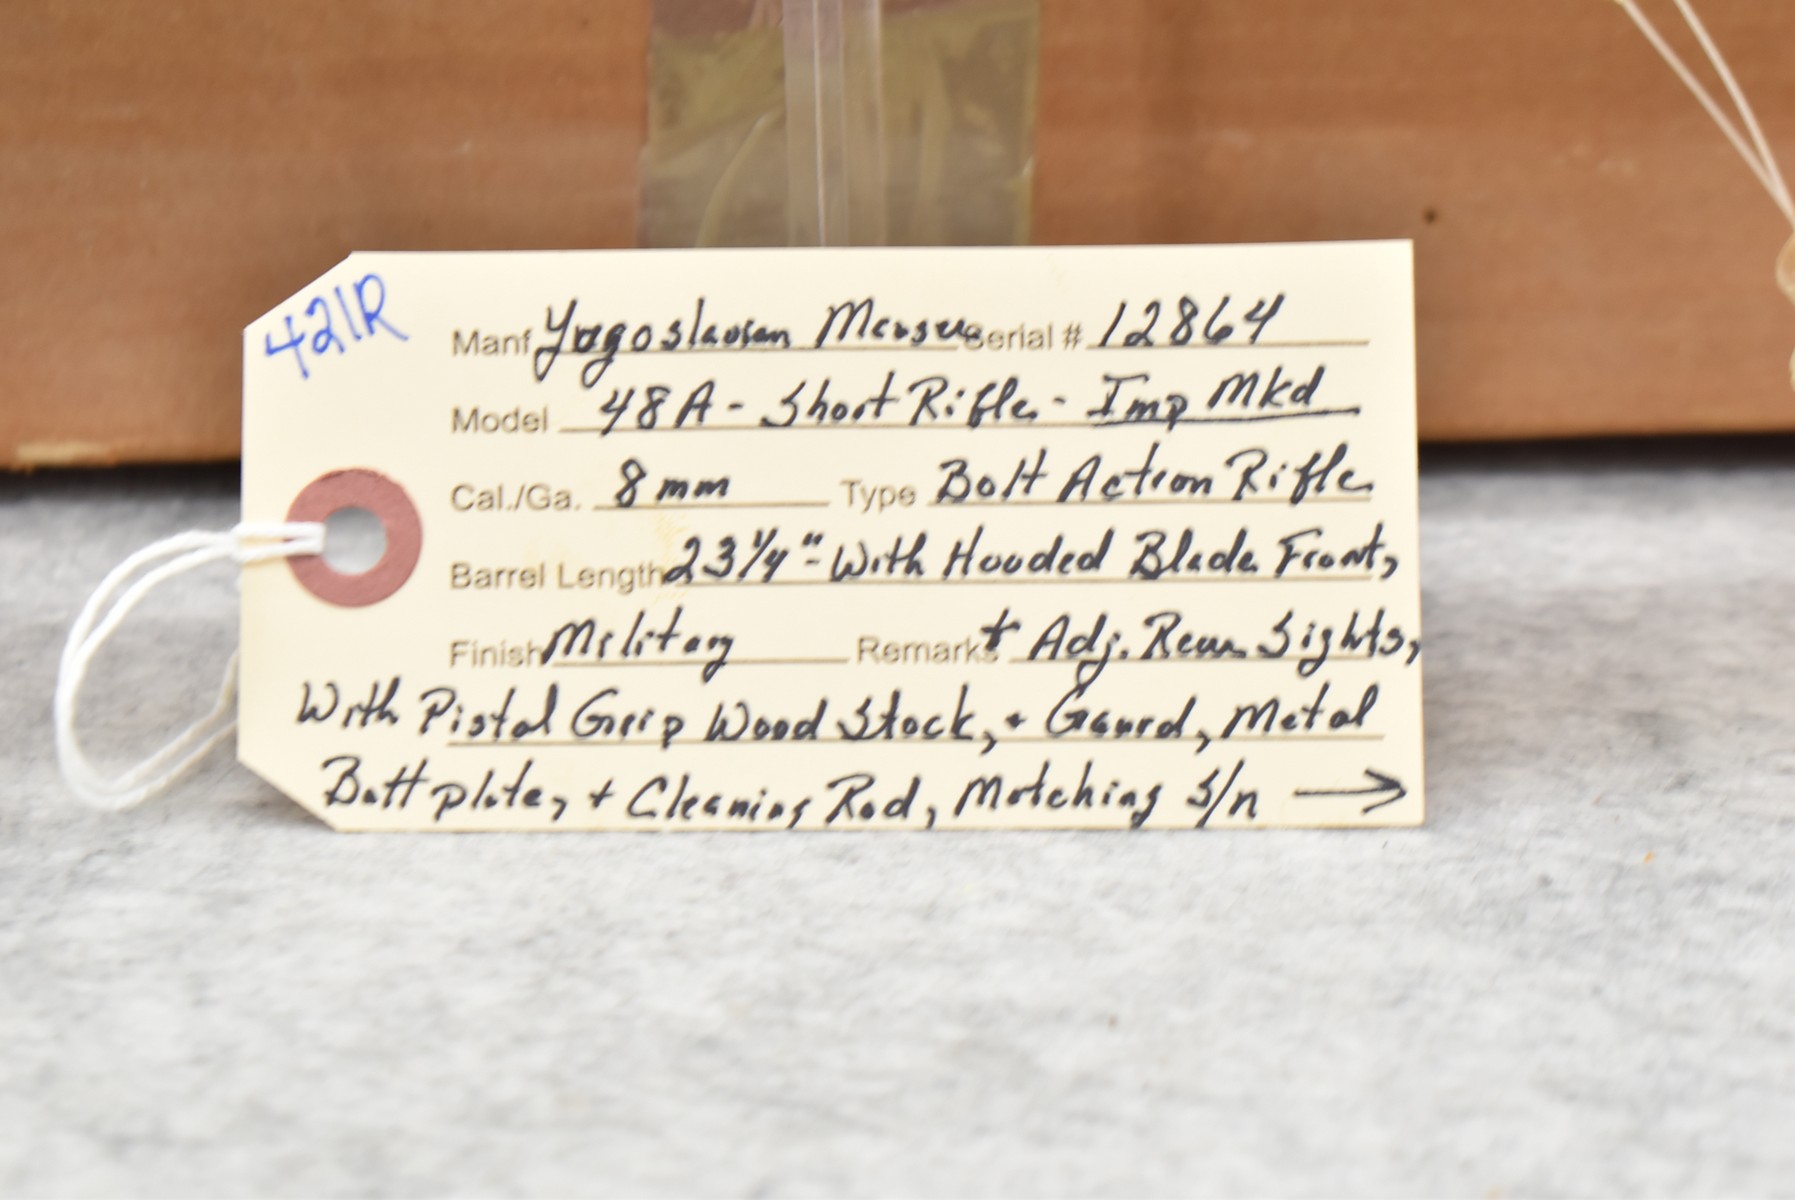 421R
Manf Yugoslavian Mauser Serial # 12864
Model 48A - Short Rifle - Imp Mkd
Cal./Ga. 8mm Type Bolt Action Rifle
Barrel Length 23 1/4" - With Hooded Blade Front,
Finish Military Remarks + Adj. Rear Sights,
With Pistol Grip Wood Stock, + Gaurd, Metal
Buttplate, + Cleaning Rod, Matching S/n →